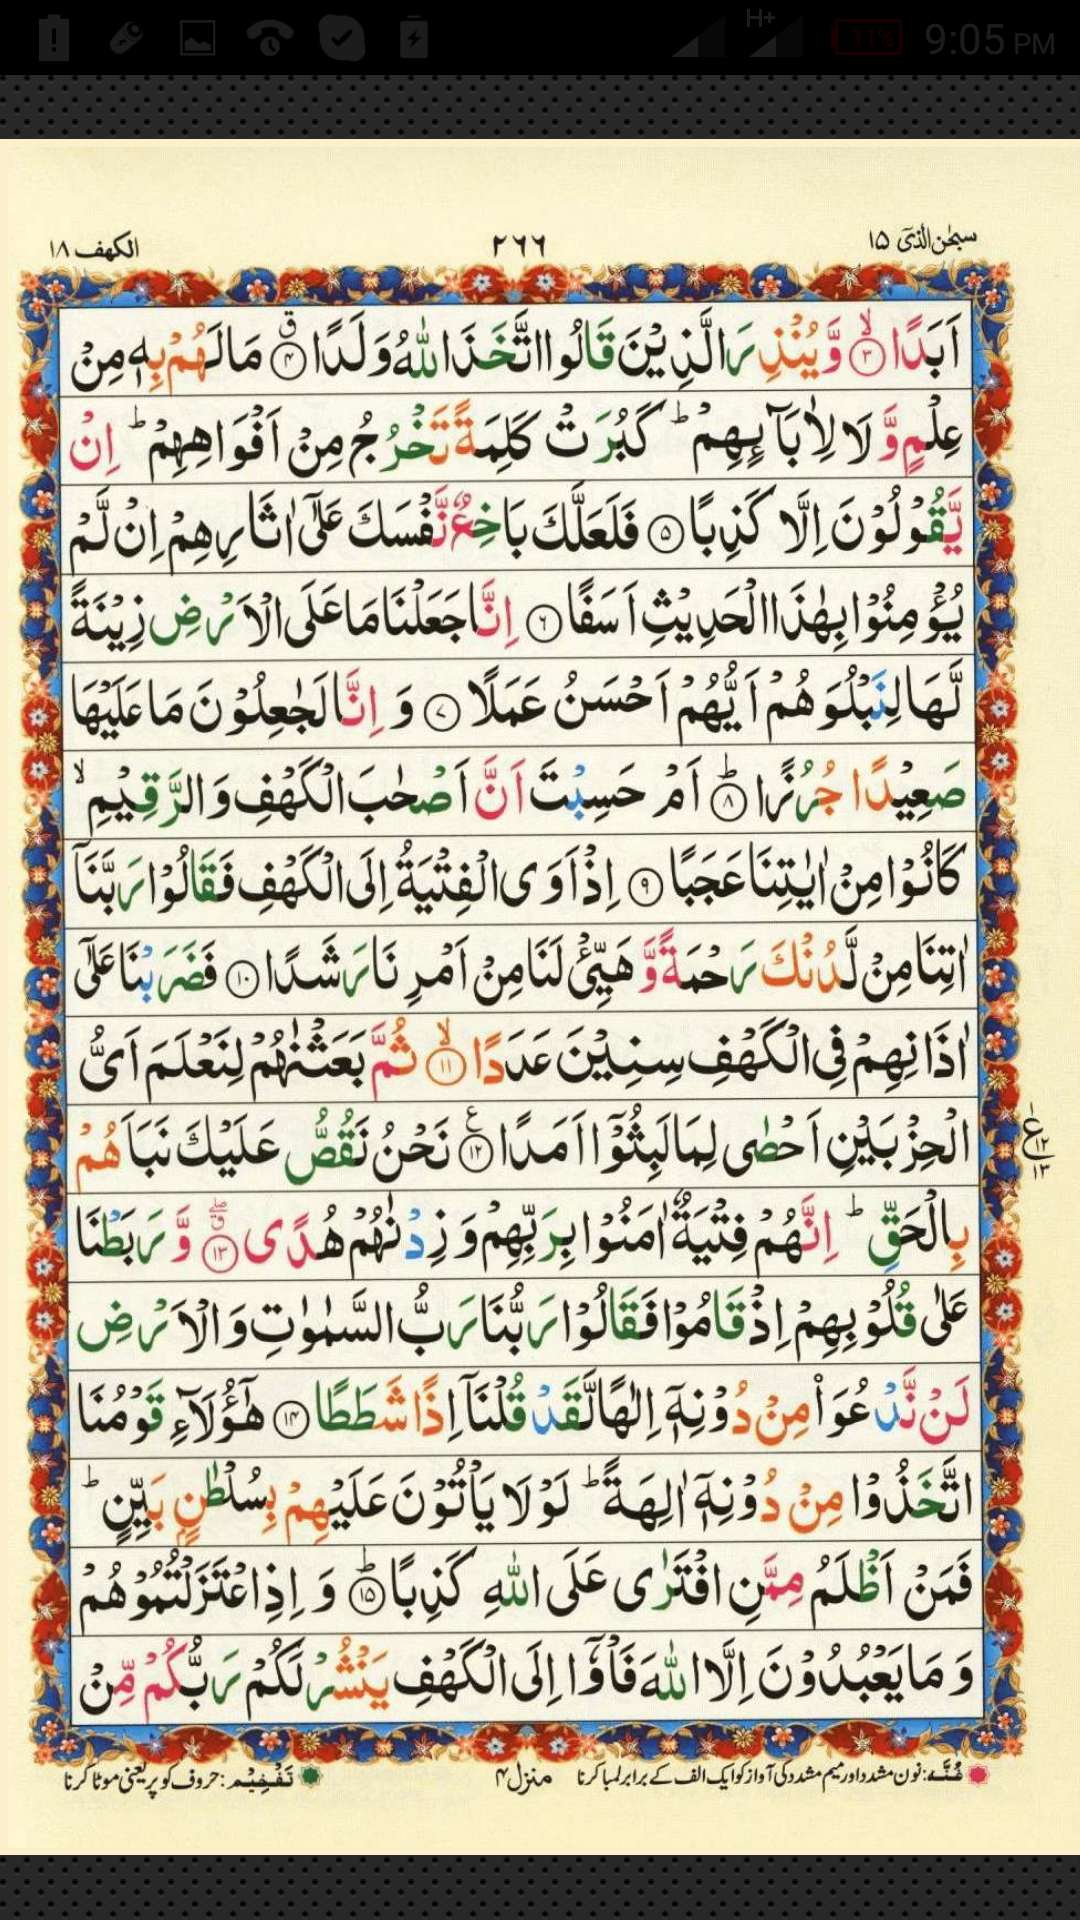 H+ 11% 9:05 PM
سبحٰن الذی ١٥ ٢٦٦ الکهف ١٨
اَبَدًا ﴿٣﴾ۙ وَّ يُنْذِرَ الَّذِيْنَ قَالُوا اتَّخَذَ اللّٰهُ وَلَدًا ﴿٤﴾ۗ مَا لَهُمْ بِهٖ مِنْ
عِلْمٍ وَّ لَا لِاٰبَآىِٕهِمْ ؕ كَبُرَتْ كَلِمَةً تَخْرُجُ مِنْ اَفْوَاهِهِمْ ؕ اِنْ
يَّقُوْلُوْنَ اِلَّا كَذِبًا ﴿٥﴾ فَلَعَلَّكَ بَاخِعٌ نَّفْسَكَ عَلٰٓى اٰثَارِهِمْ اِنْ لَّمْ
يُؤْمِنُوْا بِهٰذَا الْحَدِيْثِ اَسَفًا ﴿٦﴾ اِنَّا جَعَلْنَا مَا عَلَى الْاَرْضِ زِيْنَةً
لَّهَا لِنَبْلُوَهُمْ اَيُّهُمْ اَحْسَنُ عَمَلًا ﴿٧﴾ وَ اِنَّا لَجٰعِلُوْنَ مَا عَلَيْهَا
صَعِيْدًا جُرُزًا ﴿٨﴾ؕ اَمْ حَسِبْتَ اَنَّ اَصْحٰبَ الْكَهْفِ وَ الرَّقِيْمِ ۙ
كَانُوْا مِنْ اٰيٰتِنَا عَجَبًا ﴿٩﴾ اِذْ اَوَى الْفِتْيَةُ اِلَى الْكَهْفِ فَقَالُوْا رَبَّنَاۤ
اٰتِنَا مِنْ لَّدُنْكَ رَحْمَةً وَّ هَيِّئْ لَنَا مِنْ اَمْرِنَا رَشَدًا ﴿١٠﴾ فَضَرَبْنَا عَلٰٓى
اٰذَانِهِمْ فِى الْكَهْفِ سِنِيْنَ عَدَدًا ﴿١١﴾ۙ ثُمَّ بَعَثْنٰهُمْ لِنَعْلَمَ اَىُّ
الْحِزْبَيْنِ اَحْصٰى لِمَا لَبِثُوْۤا اَمَدًا ﴿١٢﴾ع نَحْنُ نَقُصُّ عَلَيْكَ نَبَاَهُمْ
١٢ ع ١٣
بِالْحَقِّ ؕ اِنَّهُمْ فِتْيَةٌ اٰمَنُوْا بِرَبِّهِمْ وَ زِدْنٰهُمْ هُدًى ﴿١٣﴾ۖۗ وَّ رَبَطْنَا
عَلٰى قُلُوْبِهِمْ اِذْ قَامُوْا فَقَالُوْا رَبُّنَا رَبُّ السَّمٰوٰتِ وَ الْاَرْضِ
لَنْ نَّدْعُوَا۟ مِنْ دُوْنِهٖۤ اِلٰهًا لَّقَدْ قُلْنَاۤ اِذًا شَطَطًا ﴿١٤﴾ هٰۤؤُلَآءِ قَوْمُنَا
اتَّخَذُوْا مِنْ دُوْنِهٖۤ اٰلِهَةً ؕ لَوْ لَا يَاْتُوْنَ عَلَيْهِمْ بِسُلْطٰنٍ بَيِّنٍ ؕ
فَمَنْ اَظْلَمُ مِمَّنِ افْتَرٰى عَلَى اللّٰهِ كَذِبًا ﴿١٥﴾ؕ وَ اِذِ اعْتَزَلْتُمُوْهُمْ
وَ مَا يَعْبُدُوْنَ اِلَّا اللّٰهَ فَاْوٗۤا اِلَى الْكَهْفِ يَنْشُرْ لَكُمْ رَبُّكُمْ مِّنْ
غُنَّه: نون مشدد اور میم مشدد کی آواز کو ایک الف کے برابر لمبا کرنا منزل ٤ تَفْخِيْم: حروف کو پُر یعنی موٹا کرنا